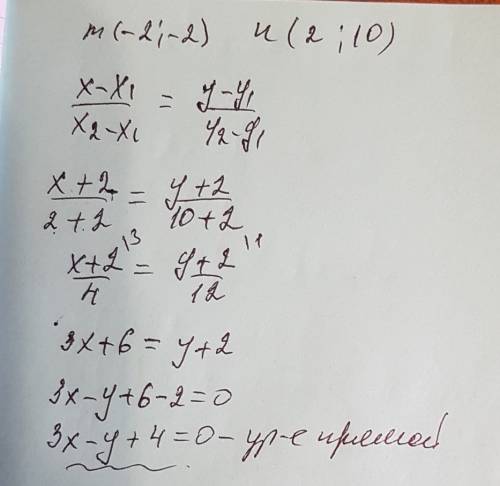 m(-2;-2) n(2;10)
x-x₁/x₂-x₁ = y-y₁/y₂-y₁
x+2/2+2 = y+2/10+2
x+2\3/4 = y+2\1/12
3x+6=y+2
3x-y+6-2=0
3x-y+4=0- ур-е прямой